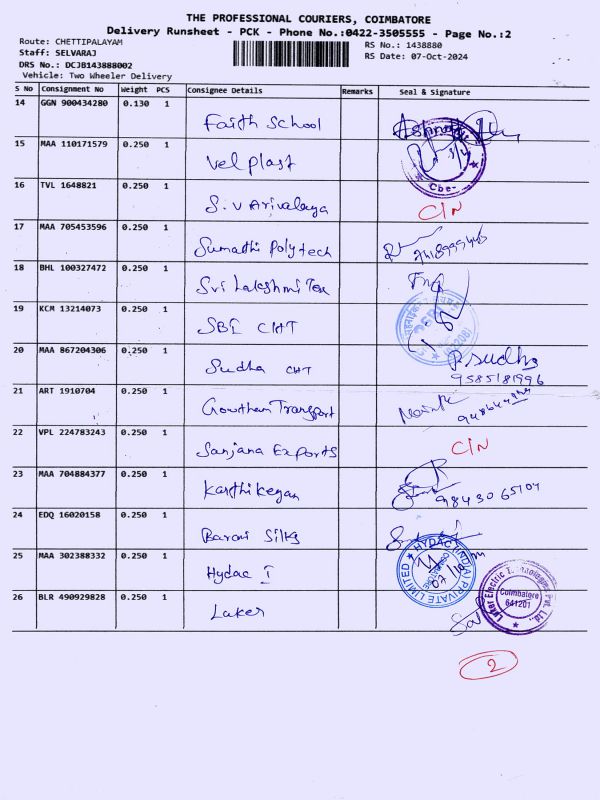 THE PROFESSIONAL COURIERS, COIMBATORE
Delivery Runsheet - PCK - Phone No.:0422-3505555 - Page No.:2
Route: CHETTIPALAYAM
RS No.: 1438880
Staff: SELVARAJ
RS Date: 07-Oct-2024
DRS No.: DCJB143888002
Vehicle: Two Wheeler Delivery
S No Consignment No Weight PCS Consignee Details Remarks Seal & Signature
14 GGN 900434280 0.130 1
Faith School
15 MAA 110171579 0.250 1
Vel plast
Cbe-
16 TVL 1648821 0.250 1
S.V Arivalaya C/N
17 MAA 705453596 0.250 1
Sumathi Polytech
18 BHL 100327472 0.250 1
Sri Lakshmi Tex
19 KCM 13214073 0.250 1
SBI CHT
20 MAA 867204306 0.250 1
Sudha CHT P. Sudha
9585181996
21 ART 1910704 0.250 1
Gowtham Transport
22 VPL 224783243 0.250 1
Sanjana Exports C/N
23 MAA 704884377 0.250 1
Karthikeyan 9843065104
24 EDQ 16020158 0.250 1
Barani Silks
25 MAA 302388332 0.250 1
Hydac I
HYDAC (INDIA) PRIVATE LIMITED
26 BLR 490929828 0.250 1
Laker
Coimbatore
641201
2